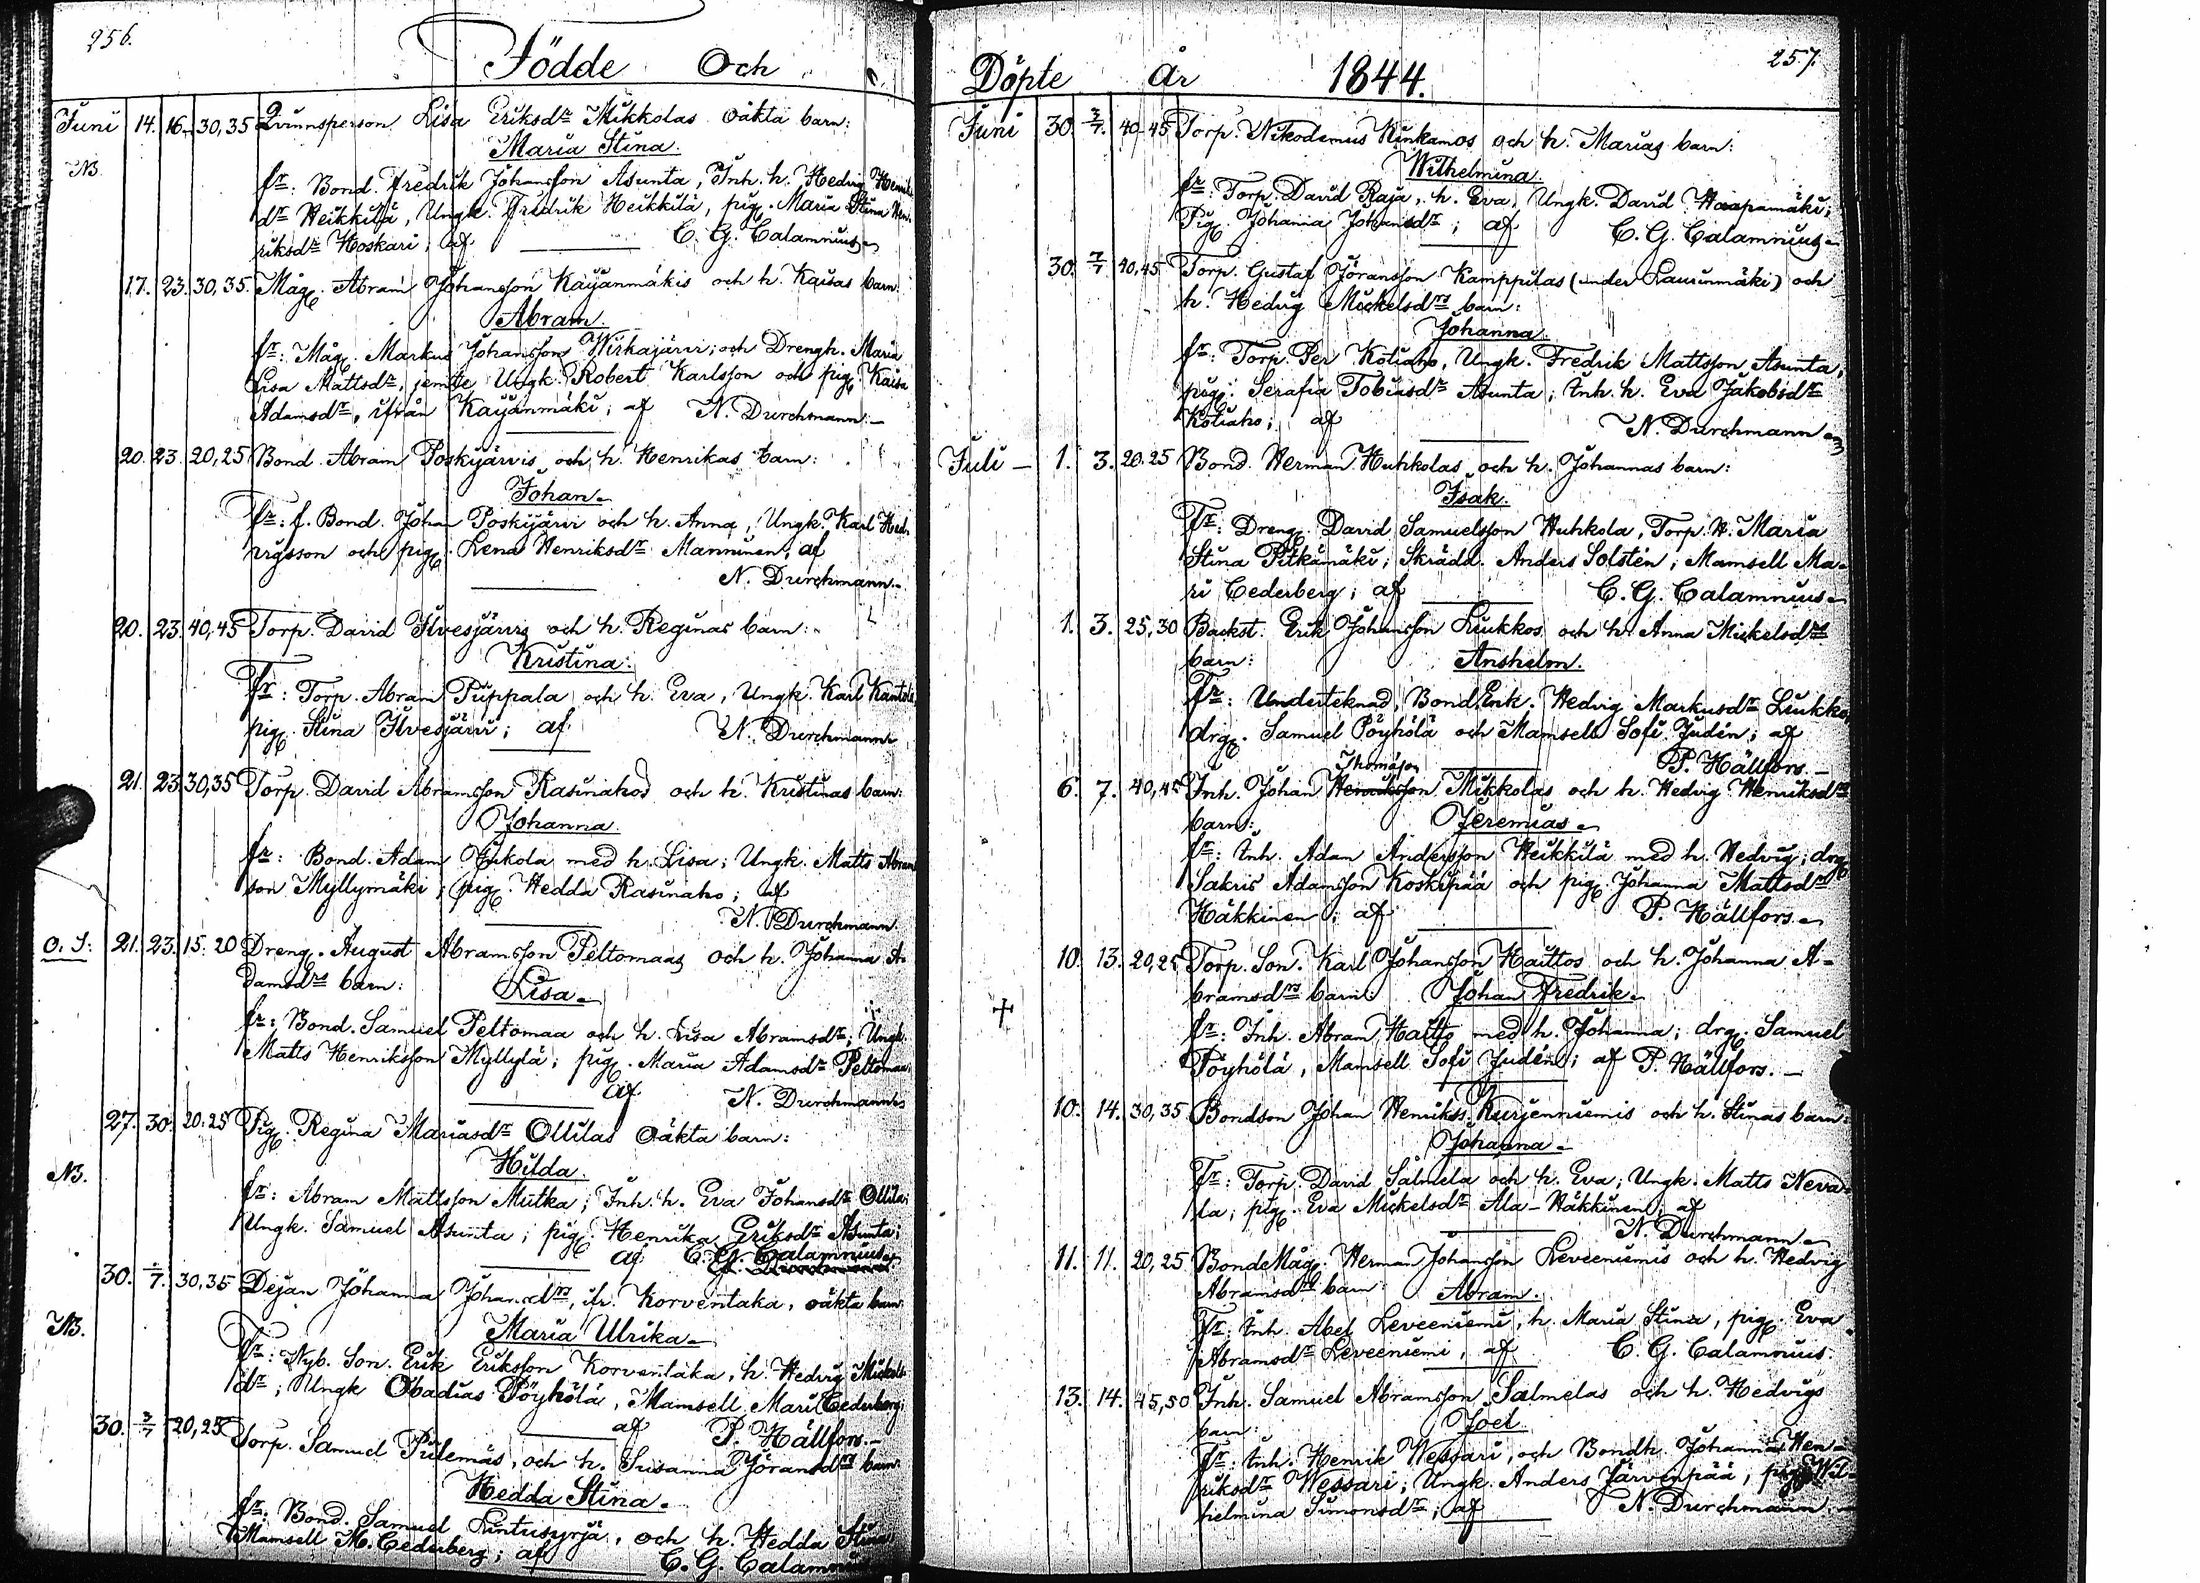 256.
Födde Och
Juni 14. 16. 30,35 Qvinnsperson Lisa Eriksdr Mikkolas oäkta barn:
Maria Stina.
NB
fr: Bond. Fredrik Johansson Asunta, Inh. h. Hedvig Henriks
dr Heikkilä, Ungk. Fredrik Heikkilä, pig. Maria Stina Hen
riksdr Koskari; af C. G. Calamnius
17. 23. 30,35. Måg. Abram Johansson Kayänmäkis och h. Kaisas barn:
Abram.
fr: Måg. Markus Johansson Wirkajärvi; och Drengh. Maria
Lisa Mattsdr, jemte Ungk. Robert Karlsson och pig. Kaisa
Adamsdr, ifrån Kayänmäki; af N. Durchmann.
20. 23. 20,25 Bond. Abram Poskijärvis och h. Henrikas barn:
Johan.
fr: f. Bond. Johan Poskijärvi och h. Anna, Ungk. Karl Hed
vigsson och pig. Lena Henriksdr Manninen, af
N. Durchmann.
20. 23. 40,45 Torp. David Ilvesjärvis och h. Reginas barn:
Kristina:
fr: Torp. Abram Piippala och h. Eva, Ungk. Karl Kantola
pig. Stina Ilvesjärvi; af N. Durchmann
21. 23 30,35 Torp. David Abramsson Rasinahos och h. Kristinas barn:
Johanna.
fr: Bond. Adam Jukola med h. Lisa; Ungk. Matts Abram
son Myllymäki; pig. Hedda Rasinaho; af
N. Durchmann.
O. S: 21. 23. 15. 20 Dreng. August Abramsson Peltomaas och h. Johanna A
damsdrs barn:
Lisa.
fr: Bond. Samuel Peltomaa och h. Lisa Abramsdr; Ungk.
Matts Henriksson Myllylä; pig. Maria Adamsdr Peltomaa
af N. Durchmann
27. 30. 20.25 Pig. Regina Mariasdr Ollilas oäkta barn:
Hilda.
NB.
fr: Abram Mattsson Mutka; Inh. h. Eva Johansdr Ollila;
Ungk. Samuel Asunta; pig. Henrika Eriksdr Asunta;
af C. G. Calamnius
N. Durchmann
30. 2/7. 30,35 Dejan Johanna Johansdrs, ifr. Korventaka, oäkta barn
NB. Maria Ulrika.
fr: Nyb. Son. Erik Eriksson Korventaka, h. Hedvig Mickels
dr; Ungk Obadias Pöyhölä, Mamsell Mari Cederberg;
af P. Hällfors.
30. 3/7 20,25 Torp. Samuel Piilemäs, och h. Susanna Göransdrs barn
Hedda Stina.
fr: Bond. Samuel Lintusyrjä, och h. Hedda Stina
Mamsell M. Cederberg; af C. G. Calamnius
257.
Döpte År 1844.
Juni 30. 3/7. 40-45 Torp. Nikodemus Kinkamos och h. Marias barn:
Wilhelmina.
fr: Torp. David Raja, h. Eva, Ungk. David Haapamäki;
Pig. Johanna Johansdr; af C. G. Calamnius
30. 7/7 40,45. Torp. Gustaf Jöransson Kamppilas (under Laurinmäki) och
h. Hedvig Mickelsdrs barn:
Johanna.
fr: Torp. Per Kotiaho, Ungk. Fredrik Mattsson Asunta,
pig: Serafia Tobiasdr Asunta; Inh. h. Eva Jakobsdr
Kotiaho; af N. Durchmann
Juli 1. 3. 20.25 Bond. Herman Huhkolas och h. Johannas barn:
Isak.
Fr: Dreng. David Samuelsson Huhkola, Torp. H. Maria
Stina Pitkämäki; Skrädd. Anders Solstén; Mamsell Ma-
ri Cederberg; af C. G. Calamnius
1. 3. 25,30 Backst. Erik Johansson Liukkos och h. Anna Mickelsdrs
barn: Anshelm.
Fr: Underteknad, Bond.Enk. Hedvig Markusdr Liukko,
drg. Samuel Pöyhölä och Mamsell Sofi Judén; af
P. Hällfors.
Thomasson
6. 7. 40,45 Inh. Johan Henriksson Mikkolas och h. Hedvig Henriksdrs
barn: Jeremias.
fr: Inh. Adam Andersson Heikkilä med h. Hedvig; drg
Sakris Adamsson Koskipää och pig. Johanna Mattsdr
Häkkinen; af P. Hällfors.
10. 13. 20,25 Torp. Son. Karl Johansson Haittos och h. Johanna A-
bramsdrs barn: Johan Fredrik.
+ fr: Inh. Abram Haitto med h. Johanna; drg. Samuel
Pöyhölä, Mamsell Sofi Judén; af P. Hällfors.
10. 14. 30,35 Bondson Johan Henrikss. Kurjenniemis och h. Stinas barn:
Johanna.
Fr: Torp. David Salmela och h. Eva; Ungk. Matts Neva-
la; pig. Eva Mickelsdr Ala-Häkkinen; af
N. Durchmann
11. 11. 20,25 BondeMåg. Herman Johansson Leveeniemis och h. Hedvig
Abramsdrs barn: Abram.
Fr: Inh. Abel Leveeniemi, h. Maria Stina, pig. Eva
Abramsdr Leveeniemi, af C. G. Calamnius.
13. 14. 45,50 Inh. Samuel Abramsson Salmelas och h. Hedvigs
barn: Joel.
fr: Inh. Henrik Wessari, och Bondh. Johanna Hen-
riksdr Wessari; Ungk. Anders Järvenpää; pig. Wil-
helmina Simonsdr; af N. Durchmann.